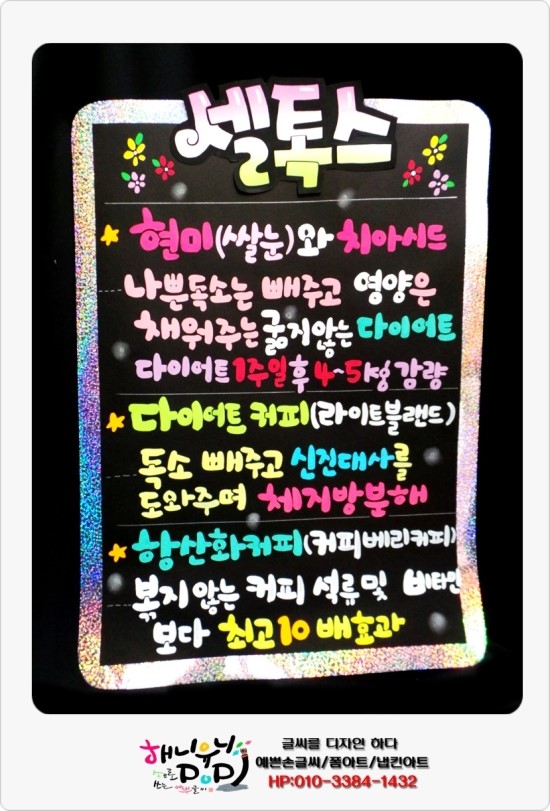 셀톡스
현미(쌀눈)와 치아시드
나쁜독소는 빼주고 영양은
채워주는 굶지않는 다이어트
다이어트 1주일후 4~5성 감량
다이어트 커피(라이트블랜드)
독소 빼주고 신진대사를
도와주며 체지방분해
항산화커피(커피베리커피)
볶지 않는 커피 석류 및 비타민
보다 최고 10 배효과
해니유니
POP
글씨를 디자인 하다
예쁜손글씨/폼아트/냅킨아트
HP:010-3384-1432